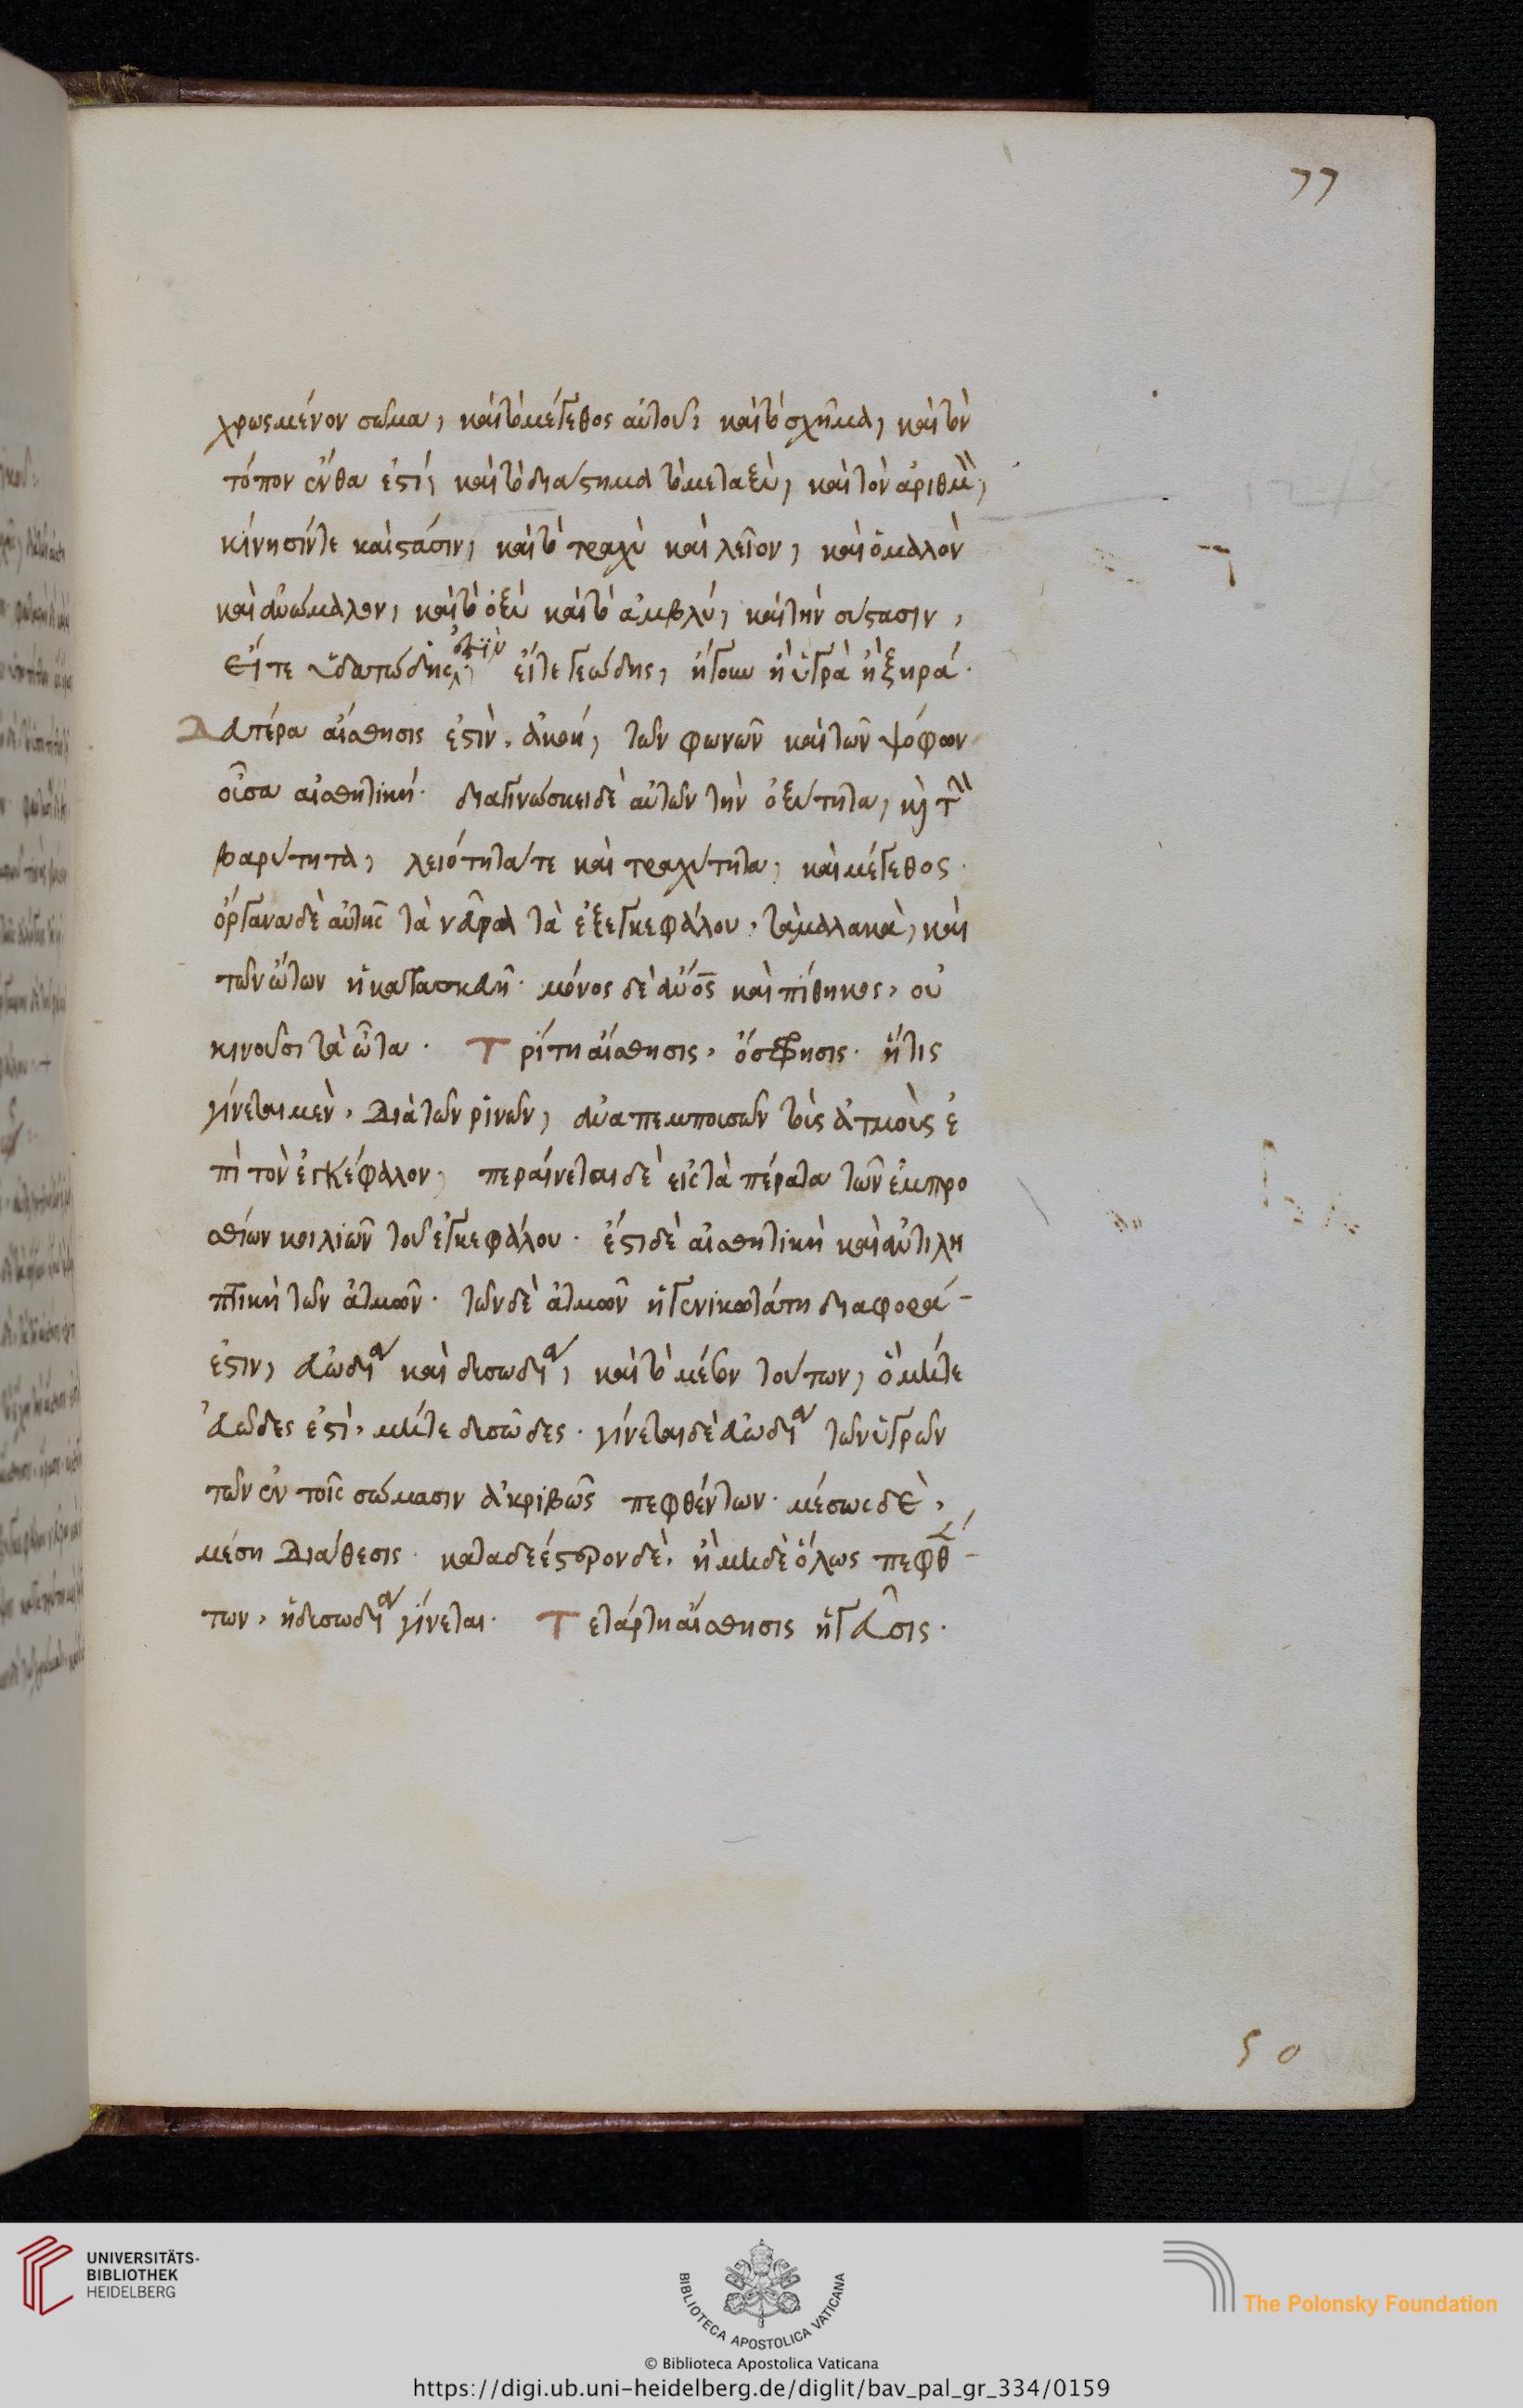 77
χρωσμένον σῶμα, καὶ τὸ μέγεθος αὐτοῦ, καὶ τὸ σχῆμα, καὶ τὸν
τόπον ἔνθα ἐστί, καὶ τὸ διάστημα τὸ μεταξὺ, καὶ τὸν ἀριθμὸν,
κίνησίντε καὶ στάσιν, καὶ τὸ τραχὺ καὶ λεῖον, καὶ ὁμαλὸν
καὶ ἀνώμαλον, καὶ τὸ ὀξὺ καὶ τὸ ἀμβλύ, καὶ τὴν σύστασιν,
εἴτε ὑδατώδης ἐστὶν, εἴτε γεώδης, ἤγουν ἢ ὑγρὰ ἢ ξηρά.
Δευτέρα αἴσθησις ἐστὶν, ἀκοή, τῶν φωνῶν καὶ τῶν ψόφων
οὖσα αἰσθητική. διαγινώσκει δὲ αὐτῶν τὴν ὀξύτητα, κὶ τὴν
βαρύτητα, λειότητά τε καὶ τραχύτητα, καὶ μέγεθος.
ὄργανα δὲ αὐτῆς τὰ νεῦρα τὰ ἐξ ἐγκεφάλου, τὰ μαλακὰ, καὶ
τῶν ὤτων ἡ κατασκευῆ. μόνος δὲ ἄνος καὶ πίθηκος, οὐ
κινοῦσι τὰ ὦτα. Τρίτη αἴσθησις, ὄσφρησις. ἥτις
γίνεται μὲν, διὰ τῶν ῥινῶν, ἀναπεμπουσῶν τοὺς ἀτμοὺς ἐ
πὶ τὸν ἐγκέφαλον, περαίνεται δὲ εἰς τὰ πέρατα τῶν ἐμπρο
σθίων κοιλιῶν τοῦ ἐγκεφάλου. ἔστι δὲ αἰσθητικὴ καὶ ἀντιλη
πτικὴ τῶν ἀτμῶν. τῶν δὲ ἀτμῶν ἡ γενικωτάτη διαφορά
ἐστιν, εὐωδία καὶ δυσωδία, καὶ τὸ μέσον τούτων, ὃ μήτε
εὐῶδες ἐστὶ, μήτε δυσῶδες. γίνεται δὲ εὐωδία τῶν ὑγρῶν
τῶν ἐν τοῖς σώμασιν ἀκριβῶς πεφθέντων. μέσως δὲ,
μέση διάθεσις. καταδεέστερον δὲ, ἢ μηδὲ ὅλως πεφθέν
των, ἡ δυσωδία γίνεται. Τετάρτη αἴσθησις ἡ γεῦσις.
50
UNIVERSITÄTS-
BIBLIOTHEK
HEIDELBERG
BIBLIOTECA APOSTOLICA VATICANA
The Polonsky Foundation
© Biblioteca Apostolica Vaticana
https://digi.ub.uni-heidelberg.de/diglit/bav_pal_gr_334/0159